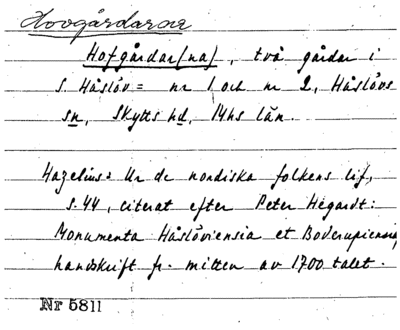 Hovgårdarna
Hofgårdar(na), två gårdar i
S. Håslöv = nr 1 och nr 2, Håslövs
sn, Skytts hd, Mhs län.
Hazelius: Ur de nordiska folkens lif,
s. 44, citerat efter Peter Hegardt:
Monumenta Håslöviensia et Boderupiensia,
handskrift fr. mitten av 1700 talet.
Nr 5811